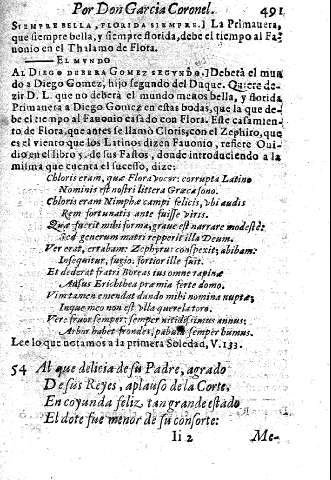 Por Don Garcia Coronel. 491
SIEMPRE BELLA, FLORIDA SIEMPRE.] La Primauera,
que siempre bella, y siempre florida, debe el tiempo al Fa-
uonio en el Thalamo de Flora.
EL MUNDO
AL DIEGO DEBERA GOMEZ SEGVNDO.] Deberà el mun
do a Diego Gomez, hijo segundo del Duque. Quiere de-
zir D. L. que no deberà el mundo menos bella, y florida
Primauera a Diego Gomez en estas bodas, que la que de-
be el tiempo al Fauonio casado con Flora. Este casamien-
to de Flora, que antes se llamò Gloris, con el Zephiro, que
es el viento que los Latinos dizen Fauonio, refiere Oui-
dio en el libro 5. de sus Fastos, donde introduciendo a la
misma que cuenta el sucesso, dize:
Chloris eram, quæ Flora vocor: corrupta Latino
Nominis est nostri littera Græca sono.
Chloris eram Nimphæ campi felicis, vbi audis
Rem fortunatis ante fuisse viris.
Quæ fuerit mihi forma, graue est narrare modestæ:
Sed generum matri repperit illa Deum.
Ver erat, errabam: Zephyrus conspexit; abibam:
Insequitur, fugio: fortior ille fuit.
Et dederat fratri Boreas ius omne rapinæ
Ausus Erichthea præmia ferre domo.
Vim tamen emendat dando mihi nomina nuptæ;
Inque meo non est vlla querela toro.
Vere fruor semper: semper nitidissimus annus:
Arbor habet frondes, pabulum semper humus.
Lee lo que notamos a la primera Soledad, V. 133.
54 Al que delicia de su Padre, agrado
De sus Reyes, aplauso de la Corte,
En coyunda feliz tan grande estado
El dote fue menor de su consorte:
Ii 2 Me-